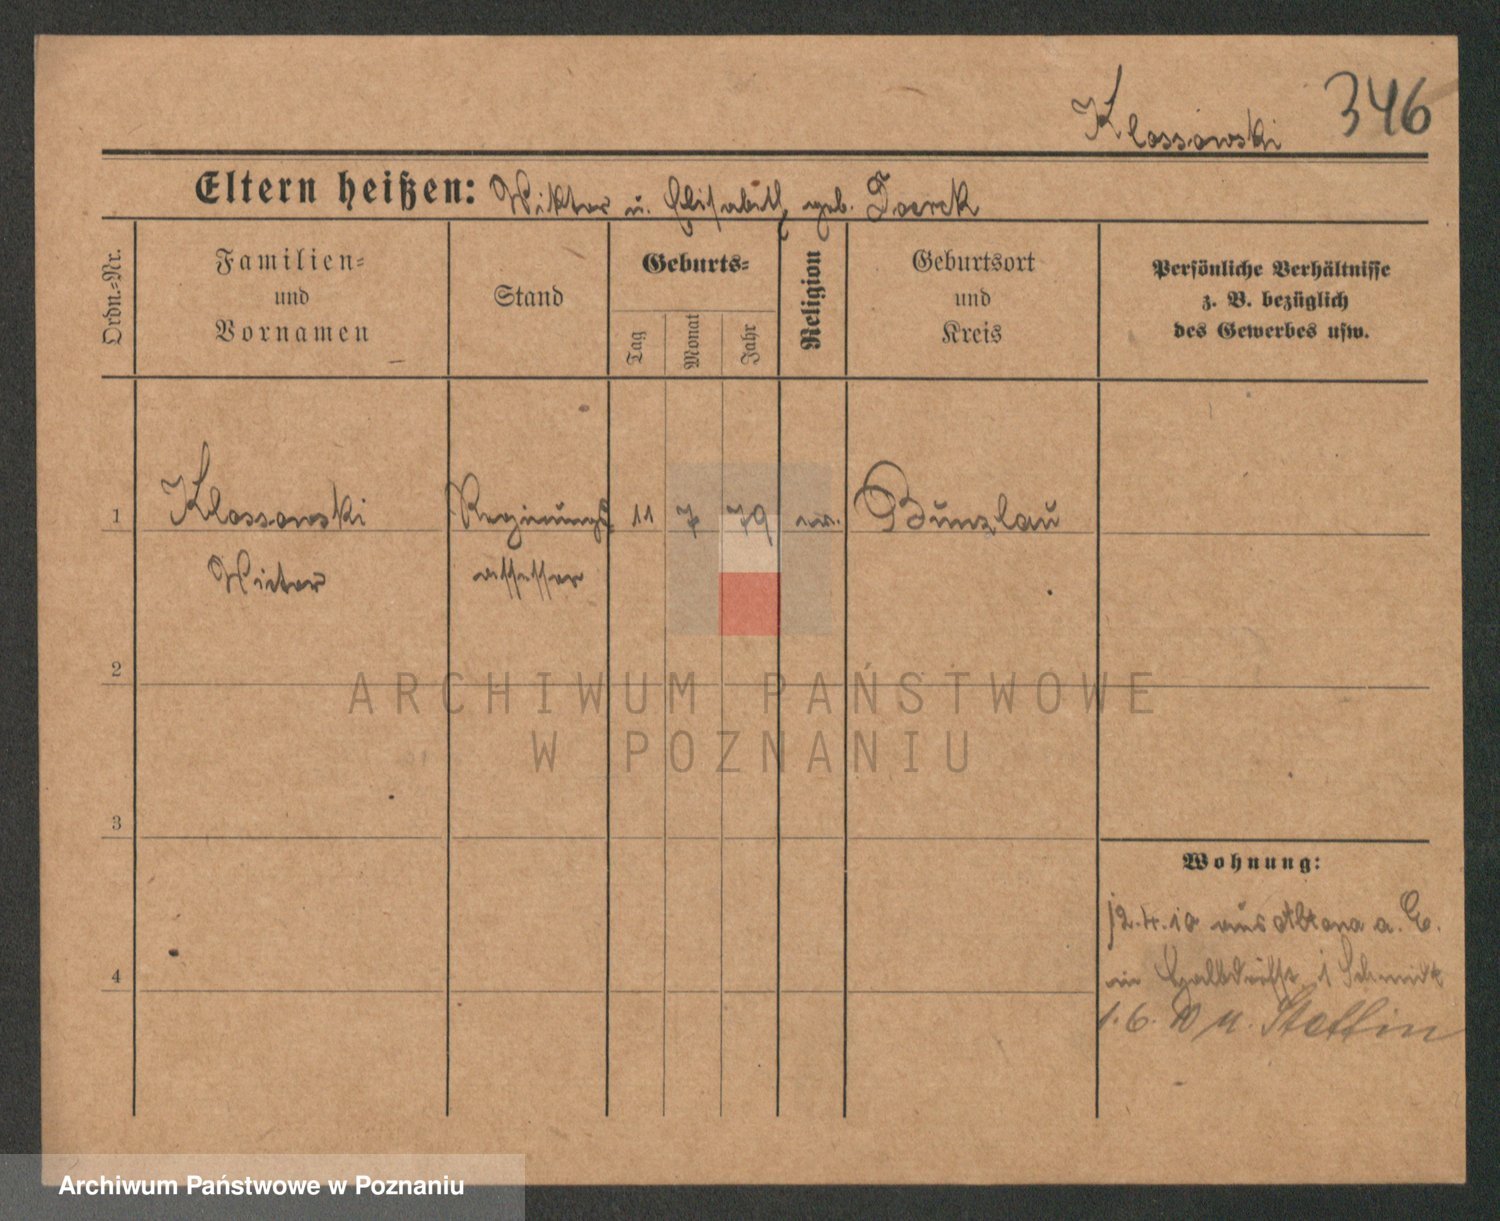 Klossowski 346
Eltern heißen: Wiktor u. Elisabeth geb. Doerck
Ordn.-Nr.
Familien-
und
Vornamen
Stand
Geburts-
Tag
Monat
Jahr
Religion
Geburtsort
und
Kreis
Persönliche Verhältnisse
z. B. bezüglich
des Gewerbes usw.
1 Klossowski Regierungs 11 7 79 ev. Bunzlau
Victor assessor
2
ARCHIWUM PAŃSTWOWE
W POZNANIU
3
Wohnung:
12.4.10 aus Altona a. E.
4
Schmidt
1.6.10 n. Stettin
Archiwum Państwowe w Poznaniu